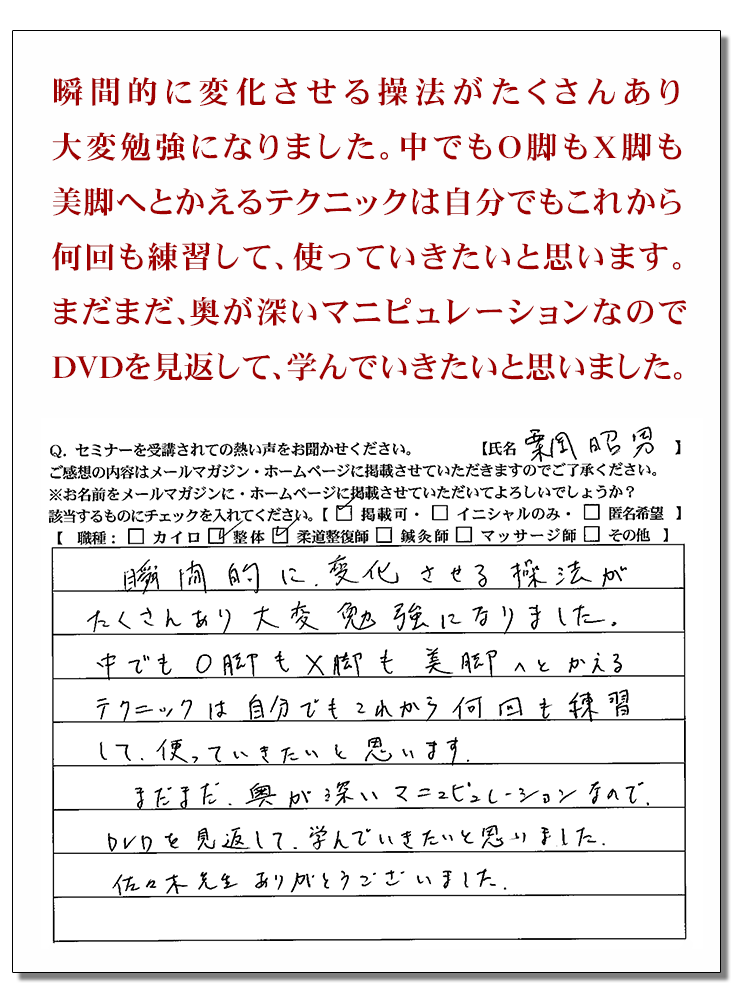 瞬間的に変化させる操法がたくさんあり
大変勉強になりました。中でもO脚もX脚も
美脚へとかえるテクニックは自分でもこれから
何回も練習して、使っていきたいと思います。
まだまだ、奥が深いマニピュレーションなので
DVDを見返して、学んでいきたいと思いました。
Q. セミナーを受講されての熱い声をお聞かせください。 【氏名 粟岡 昭男 】
ご感想の内容はメールマガジン・ホームページに掲載させていただきますのでご了承ください。
※お名前をメールマガジンに・ホームページに掲載させていただいてよろしいでしょうか?
該当するものにチェックを入れてください。【 ☑ 掲載可・ □ イニシャルのみ・ □ 匿名希望 】
【 職種： □ カイロ ☑ 整体 ☑ 柔道整復師 □ 鍼灸師 □ マッサージ師 □ その他 】
瞬間的に、変化させる操法が
たくさんあり大変勉強になりました。
中でもO脚もX脚も美脚へとかえる
テクニックは自分でもこれから何回も練習
して、使っていきたいと思います。
まだまだ、奥が深いマニュピュレーションなので、
DVDを見返して、学んでいきたいと思いました。
佐々木先生ありがとうございました。